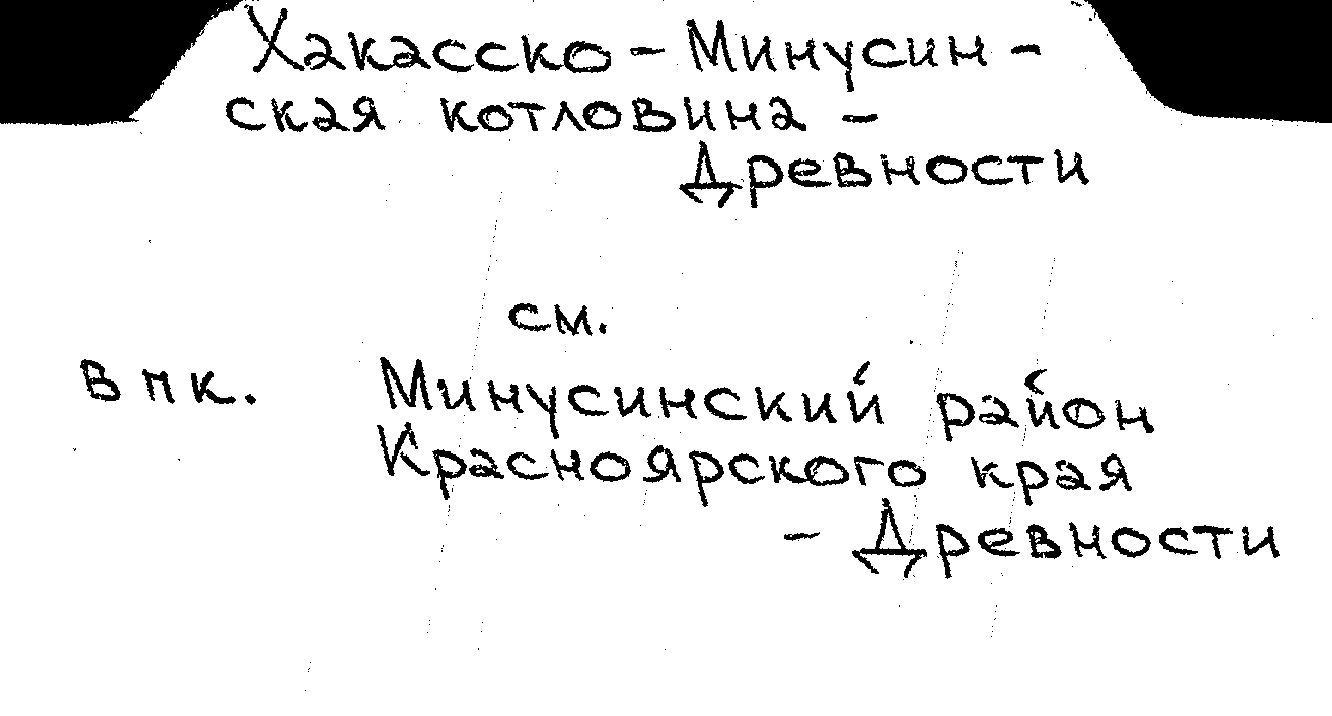 Хакасско - Минусин -
ская котловина -
Древности
см.
в пк. Минусинский район
Красноярского края
- Древности